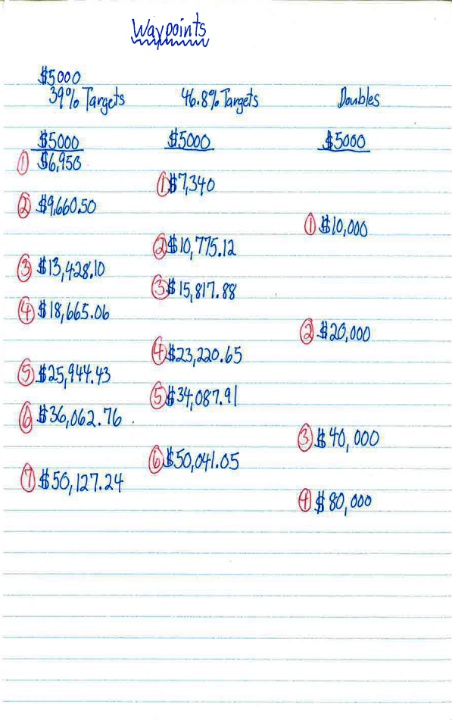 Waypoints
$5000
39% Targets 46.8% Targets Doubles
$5000 $5000 $5000
① $6,950
① $7,340
② $9,660.50
① $10,000
② $10,775.12
③ $13,428.10
③ $15,817.88
④ $18,665.06
② $20,000
④ $23,220.65
⑤ $25,944.43
⑤ $34,087.91
⑥ $36,062.76
③ $40,000
⑥ $50,041.05
⑦ $50,127.24
④ $80,000